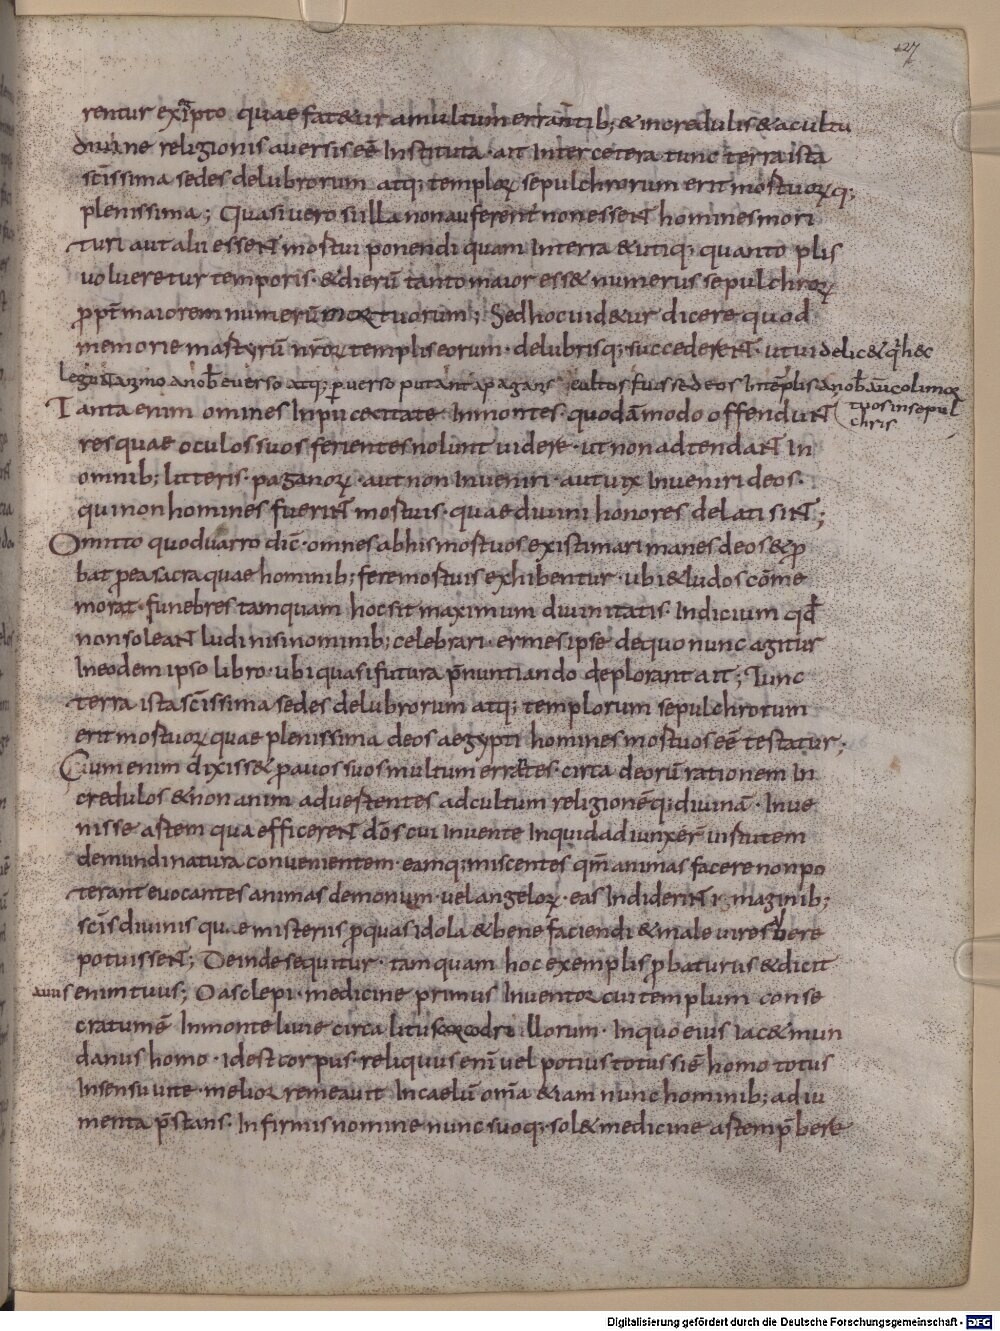 127
rentur exāpto quae fat&ur a multum errantib; & incredulis & a cultu
diuine religionis auersis eē Instituta · ait Inter cetera tunc terra ista
sc̄issima sedes delubrorum atq; temploꝝ sepulchrorum erit mortuoꝝ q;
plenissima ; Quasi uero si illa non auferent non essent homines mori
turi aut alii essent mortui ponendi quam In terra & utiq; quanto plis
uolueretur temporis · & dierū tanto maior ess& numerus sepulchroꝝ
ꝓpt̄ maiorem numerū mortuorum ; Sed hoc uid&ur dicere quod
memorie martyrū nr̄oꝝ templis eorum · delubrisq; succederent · ut uidelic& q̄ hęc
legunt animo a nob̄ euerso atq; ꝑuerso putant a paganis cultos fuisse deos In tēplis a nob̄ aū coli mor
tuos in sepul
chris
Tanta enim omines Inpii cecitate In montes · quodā modo offendunt
res quae oculos suos ferientes nolunt uidere · ut non adtendant In
omnib; litteris · paganoꝝ · aut non Inueniri · aut uix Inueniri deos ·
qui non homines fuerint mortuis · quae diuini honores delati sint ;
Omitto quod uarro dic̄ · omnes ab his mortuos existimari manes deos & ꝓ
bat ꝑ ea sacra quae hominib; fere mortuis exhibentur · ubi & ludos cōme
morat · funebres tamquam hoc sit maximum diuinitatis · Indicium qd̄
non soleant ludi nisi nominib; celebrari · ermes ipse de quo nunc agitur
In eodem ipso libro · ubi quasi futura p̄nuntiando deplorant ait ; Tunc
terra ista sc̄issima sedes delubrorum atq; templorum sepulchrorum
erit mortuoꝝ quae plenissima deos aegypti homines mortuos eē testatur ;
Cum enim dixiss& ꝓauos suos multum errātes · circa deorū rationem In
credulos & non anim aduertentes ad cultum religionēq; diuinā · Inue
nisse artem qua efficerent dōs cui Inuente Inquid adiunxer̄ uirtutem
de mundi natura conuenientem · eamq; miscentes qm̄ animas facere non po
terant euocantes animas demonum · uel angeloꝝ · eas Indiderint imaginib;
sc̄is diuinis quae misteriis ꝑ quas idola & bene faciendi & male uires habere
potuissent ; Deinde sequitur · tamquam hoc exemplis ꝓbaturus & dicit
auus enim tuus ; O asclepi · medicine primus Inuentor cui templum conse
cratum ē In monte liuie circa litus corcodrillorum · In quo eius iac& mun
danus homo · id est corpus · reliquus enī uel potius totus si ē homo totus
In sensu uite · melior remeauit In caelū om̄a & iam nunc hominib; adiu
menta p̄stans · Infirmis nomine nunc suoq; sol& medicine artem p̄bere
Digitalisierung gefördert durch die Deutsche Forschungsgemeinschaft - DFG